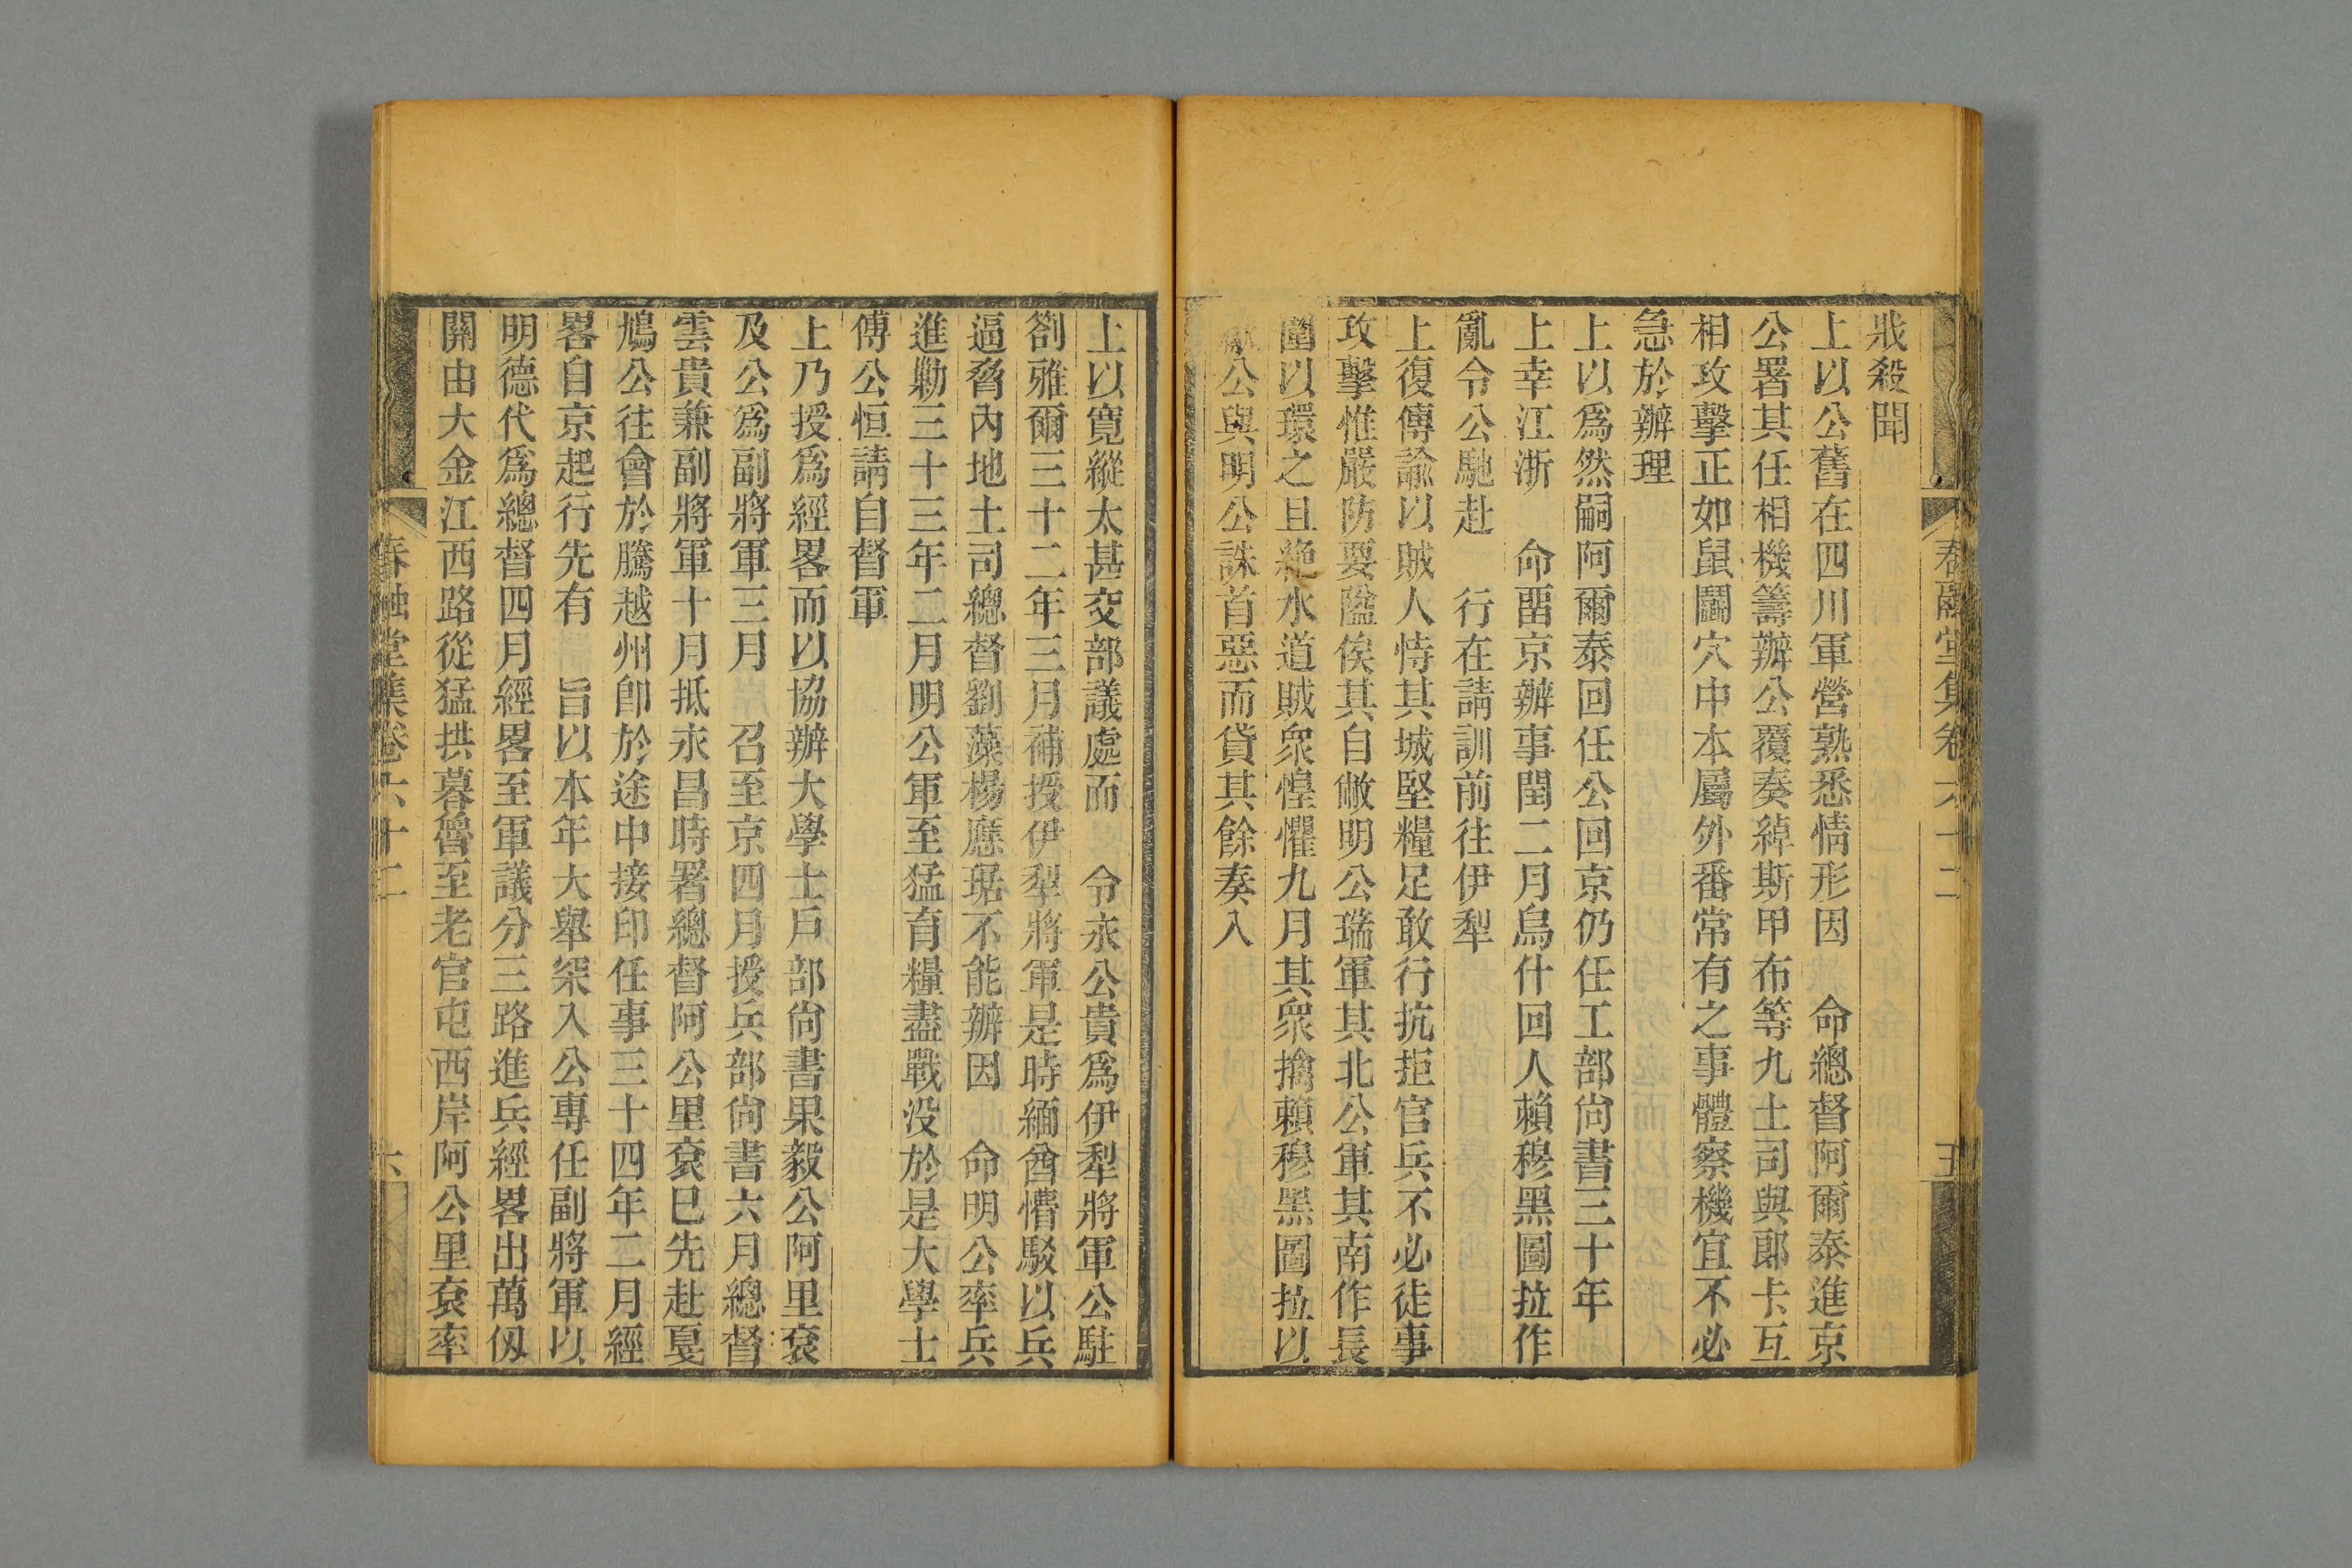 春融堂集卷六十二
五
戕殺聞
上以公舊在四川軍營熟悉情形因　命總督阿爾泰進京
公署其任相機籌辦公覆奏綽斯甲布等九土司與郎卡互
相攻擊正如鼠鬬穴中本屬外番常有之事體察機宜不必
急於辦理
上以爲然嗣阿爾泰回任公回京仍任工部尙書三十年
上幸江浙　命畱京辦事閏二月烏什回人賴穆黑圖拉作
亂令公馳赴　行在請訓前往伊犁
上復傳諭以賊人恃其城堅糧足敢行抗拒官兵不必徒事
攻擊惟嚴防要隘俟其自敝明公瑞軍其北公軍其南作長
圍以環之且絶水道賊衆惶懼九月其衆擒賴穆黑圖拉以
公與明公誅首惡而貸其餘奏入
上以寬縱太甚交部議處而　令永公貴爲伊犁將軍公駐
劄雅爾三十二年三月補授伊犁將軍是時緬酋懵駁以兵
逼脅內地土司總督劉藻楊應琚不能辦因　命明公率兵
進勦三十三年二月明公軍至猛育糧盡戰没於是大學士
傅公恒請自督軍
上乃授爲經畧而以協辦大學士戶部尙書果毅公阿里衮
及公爲副將軍三月　召至京四月授兵部尙書六月總督
雲貴兼副將軍十月抵永昌時署總督阿公里衮已先赴戛
鳩公往會於騰越州卽於途中接印任事三十四年二月經
畧自京起行先有　旨以本年大舉罙入公專任副將軍以
明德代爲總督四月經畧至軍議分三路進兵經畧出萬仭
關由大金江西路從猛拱暮魯至老官屯西岸阿公里衮率
春融堂集卷六十二
六